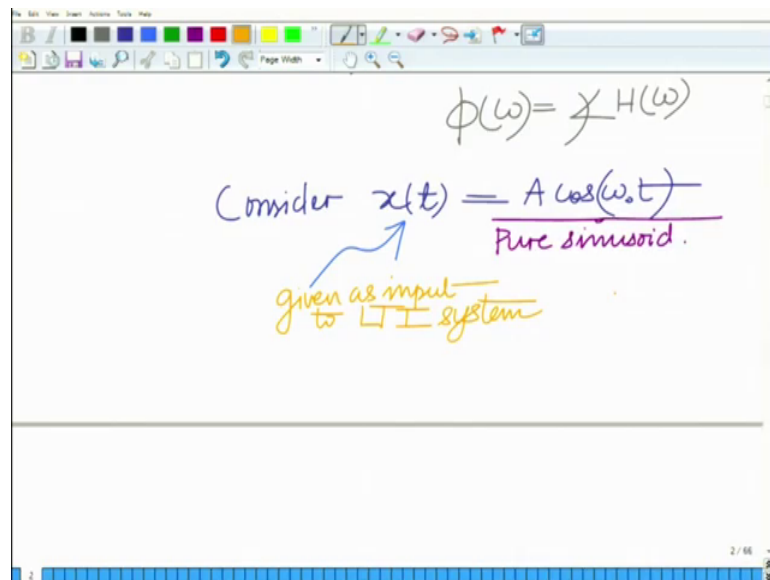 File Edit View Insert Actions Tools Help
B I
Page Width
ϕ(ω) = ∠H(ω)
Consider x(t) = A cos(ω₀t)
Pure sinusoid.
given as input
to LTI system
2 / 66
2